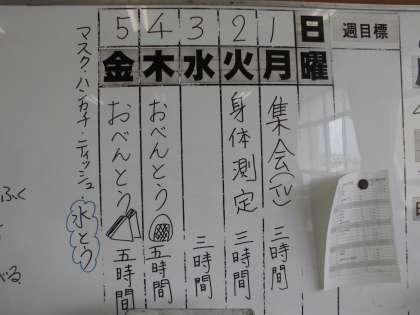 週目標
日曜
1月 集会(TV) 三時間
2火 身体測定 三時間
3水 三時間
4木 おべんとう 五時間
5金 おべんとう 五時間
マスク・ハンカチ・ティッシュ・水とう